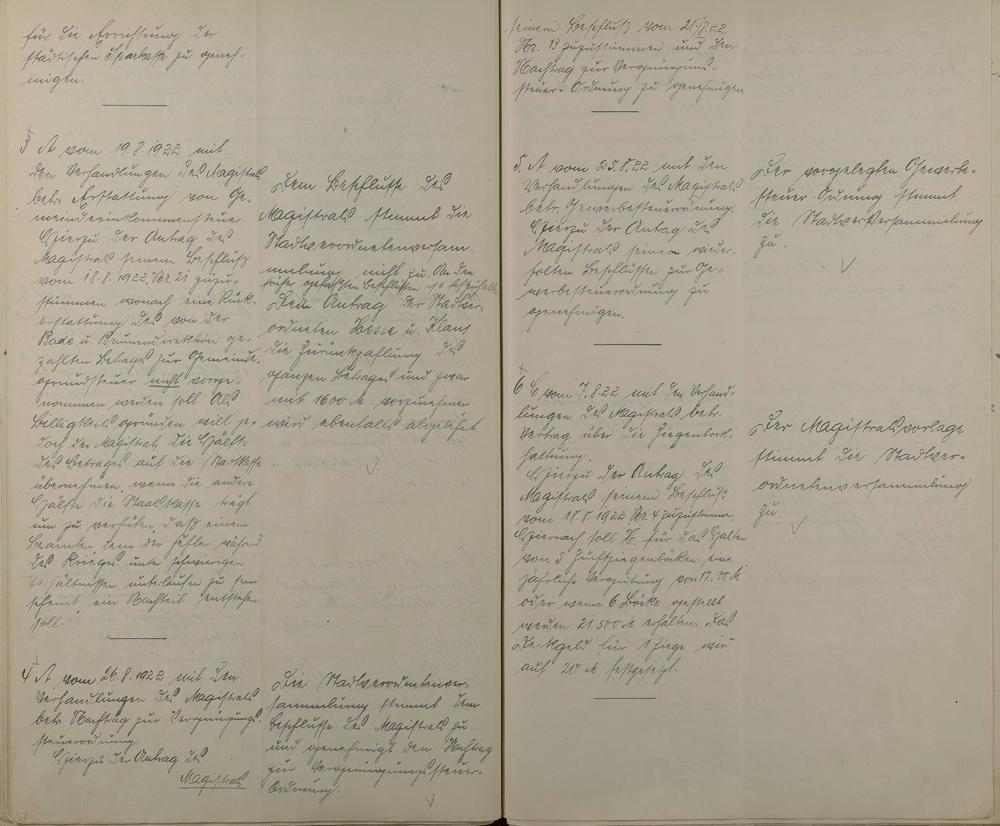 für die Errichtung der
städtischen Sparkasse zu geneh-
migen.
3 A vom 19.8.1922 mit
den Verhandlungen des Magistrats
betr. Erstattung von Ge-
meindeeinkommensteuer.
Hierzu der Antrag des
Magistrats seinem Beschluß
vom 18.8.1922, Nr. 21 zuzu-
stimmen wonach eine Rück-
erstattung des von der
Bade u. Brunnendirektion ge-
zahlten Betrags zur Gemeinde-
grundsteuer nicht vorge-
nommen werden soll. Als
Billigkeitsgründen will je-
doch der Magistrat die Hälfte
des Betrages auf die Stadtkasse
übernehmen, wenn die andre
Hälfte die Staatskasse trägt
um zu verhüten, daß einem
Beamten dem der Fehler während
des Krieges unter schwierigen
Verhältnissen unterlaufen zu sein
scheint, ein Nachteil entstehen
soll.
Dem Beschlusse des
Magistrats stimmt die
Stadtverordnetenversam-
mlung nicht zu. An den
früher gefaßten Beschlüssen ist festzuhalten
Den Antrag der Stadtver-
ordneten Hesse u. Klaus
die Zurückzahlung des
ganzen Betrages und zwar
mit 1600 M vorzunehmen
wird ebenfalls abgelehnt
4 A vom 26.8.1922 mit den
Verhandlungen des Magistrats
betr. Nachtrag zur Vergnügungs-
steuerordnung.
Hierzu der Antrag des
Magistrats
Die Stadtverordnetenver-
sammlung stimmt dem
Beschlusse des Magistrats zu
und genehmigt den Nachtrag
zur Vergnügungssteuer-
Ordnung.
seinem Beschluß vom 25./8.22.
Nr. 13 zuzustimmen und den
Nachtrag zur Vergnügungs-
steuer-Ordnung zu genehmigen
5. A vom 25.8.22 mit den
Verhandlungen des Magistrats
betr. Gewerbesteuerordnung.
Hierzu der Antrag des
Magistrats seinen wieder-
holten Beschlüssen zur Ge-
werbesteuerordnung zu
genehmigen.
Der vorgelegten Gewerbe-
steuer-Ordnung stimmt
die Stadtver.Versammlung
zu.
6 C vom 7.8.22 mit den Verhand-
lungen des Magistrats betr.
Vertrag über die Ziegenbock-
haltung.
Hierzu der Antrag des
Magistrats seinem Beschluß
vom 18.8.1922 Nr. 4 zuzustimmen.
Hiernach soll H. für das Halten
von 5 Zuchtziegenböcken eine
jährliche Vergütung von M
oder wenn 6 Böcke gestellt
werden 21.500 M erhalten. Das
Deckgeld für 1 Ziege wird
auf 20 M festgesetzt.
Der Magistratsvorlage
stimmt die Stadtver-
ordnetenversammlung
zu.